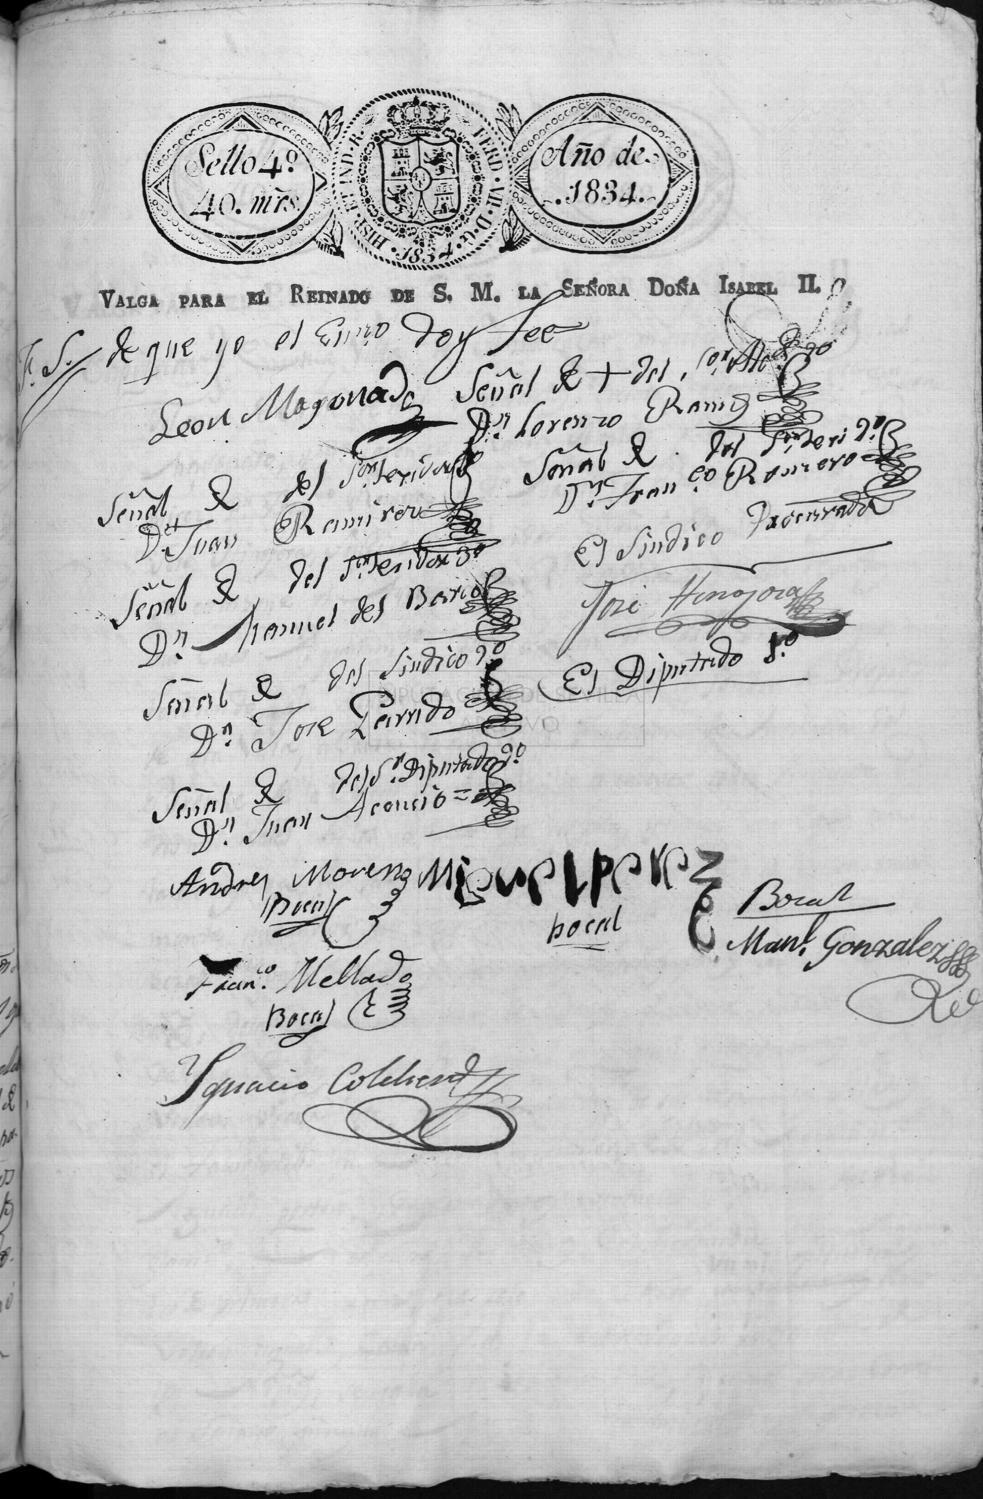 Sello 4º.
40. mrs.
HISP. ET IND. R. FERD. VII. D. G. 1834
Año de
1834.
VALGA PARA EL REINADO DE S. M. LA SEÑORA DOÑA ISABEL II.
de que yo el Essno doy fee
Leon Mogonado
Señal de + del Sor
Dn. Lorenzo Ramos
Señal de del Sor
Dn. Juan Ramirez
Señal de del Sor 2º
Dn. Franco Romero
Señal de del Sor 3º
Dn. Manuel del Barrio
El Sindico Procurador
José Hinojosa
Señal de del Sindico 2º
Dn. Jose Parrado
El Diputado 1.º
DIPUTACION DE SEVILLA
ARCHIVO
Señal de del Sr. Diputado 2º
Dn. Juan Asencio =
Andres Moreno
Bocal
Miguel perez
bocal
Bocal
Manl. Gonzalez
Franco. Mellado
Bocal
Ygnacio Colchero